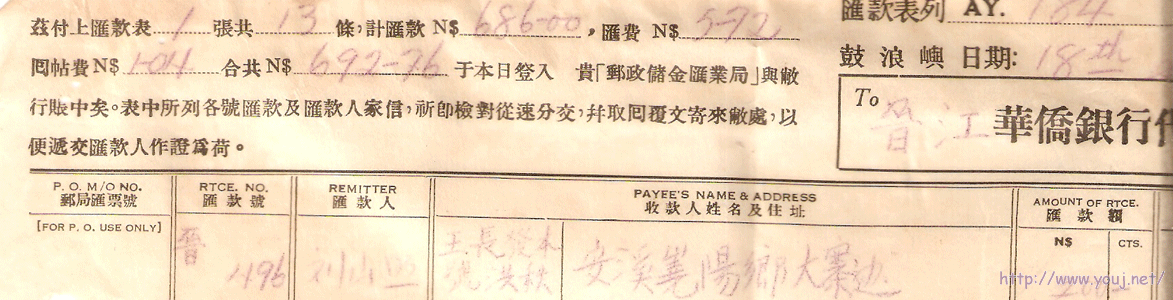 茲付上匯款表 1 張共 13 條，計匯款 N$ 686-00，匯費 N$ 5-72
囘帖費 N$ 1-04 合共 N$ 692-76 于本日登入 貴「郵政儲金匯業局」與敝
行賬中矣。表中所列各號匯款及匯款人家信，祈卽檢對從速分交，幷取囘覆文寄來敝處，以
便遞交匯款人作證爲荷。
匯款表列 AY. 184
鼓浪嶼 日期: 18th
To
晉江 華僑銀行
P. O. M/O NO.
郵局匯票號
[FOR P. O. USE ONLY]
RTCE. NO.
匯款號
REMITTER
匯款人
PAYEE'S NAME & ADDRESS
收款人姓名及住址
AMOUNT OF RTCE.
匯款額
N$ CTS.
晉 496
安溪 陽鄉大寨边
http://www.youj.net/